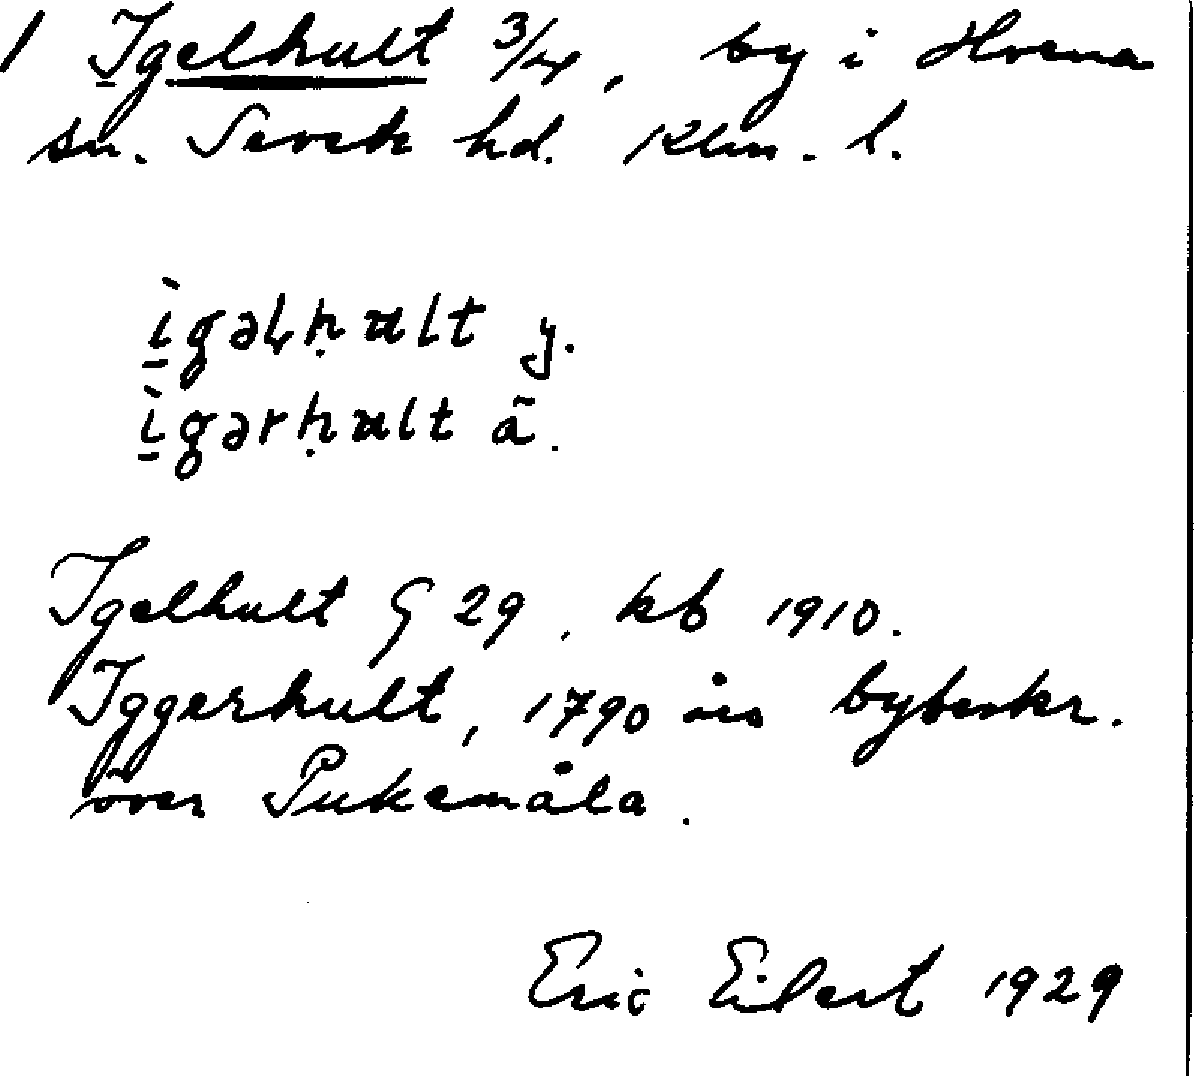 1 Igelhult 3/4, by i Hvena
sn. Sevede hd. Klm. l.
ìgəɫḥult y.
ìgərḥult ä.
Igelhult G 29, kb 1910.
Iggerhult, 1790 års bybeskr.
över Pukemåla.
Eric Eilert 1929